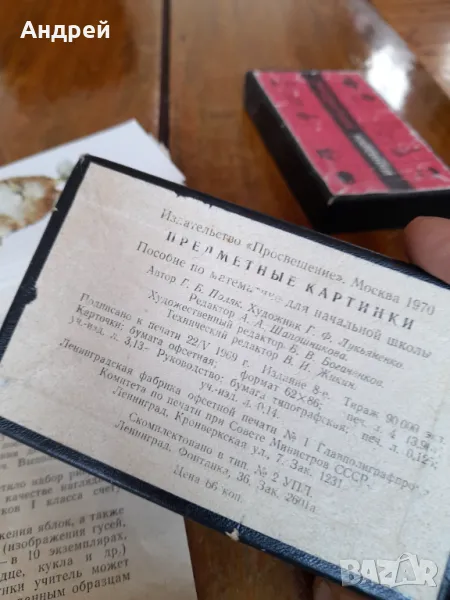 Андрей
Издательство «Просвещение». Москва 1970
ПРЕДМЕТНЫЕ КАРТИНКИ
Пособие по математике для начальной школы
Автор Г. Б. Поляк. Художник Г. Ф. Лукьяненко.
Редактор А. А. Шапошникова.
Художественный редактор Б. В. Богаченков.
Технический редактор В. И. Жикин.
Подписано к печати 22/V 1969 г. Издание 8-е. Тираж 90 000 экз.
Карточки: бумага офсетная; формат 62×86; печ. л. 4
уч.-изд. л. 3,13 Руководство: бумага типографская; печ. л. 0,12
уч.-изд. л. 0,14.
Ленинградская фабрика офсетной печати № 1 Главполиграфпрома
Комитета по печати при Совете Министров СССР,
Ленинград, Кронверкская ул., 7. Зак. 1231
Скомплектовано в тип. № 2 УПЛ.
Ленинград, Фонтанка, 36. Зак.
Цена 66 коп.
тило набор
качестве нагляд
ков I класса счету
жения яблок, а также
(изображения гусей,
— в 10 экземплярах,
дце, кукла и др.)
нки учитель может
денным образцам
BAZAR